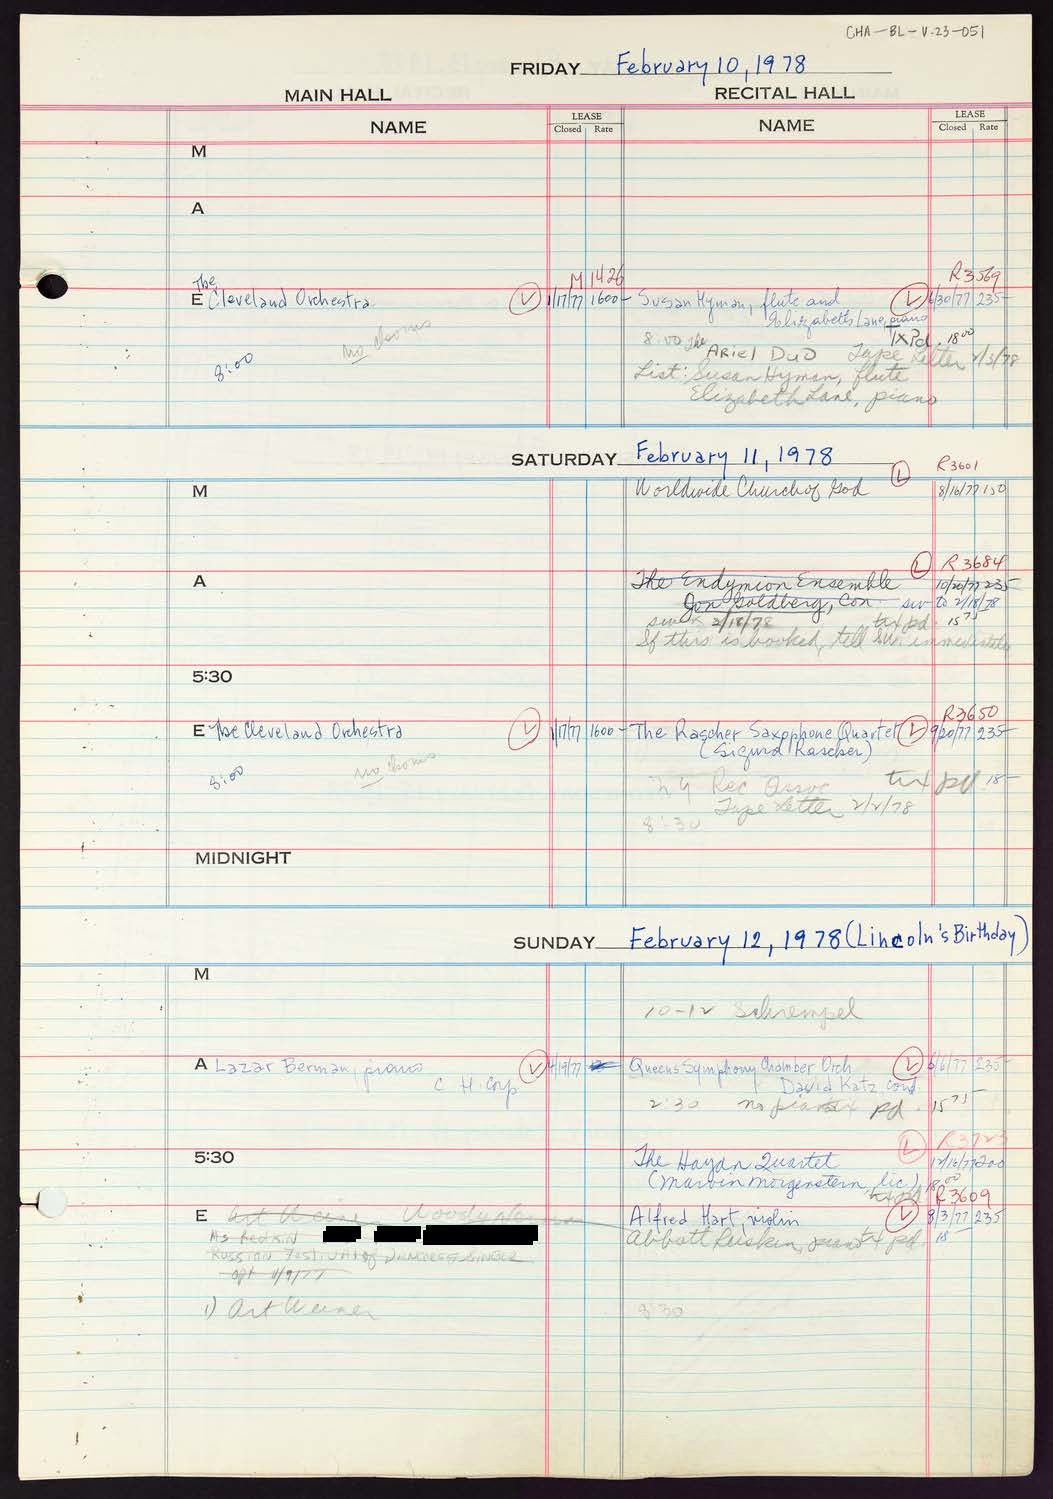 CHA-BL-V.23-051
FRIDAY February 10, 1978
MAIN HALL RECITAL HALL
NAME LEASE Closed Rate NAME LEASE Closed Rate
M
A
M 1426 R3569
The
E Cleveland Orchestra L 1/17/77 1600- Susan Hyman, flute and L 6/30/77 235-
Elizabeth Lane, piano
no chorus 8:00 The TxPd. 18 00
8:00 Ariel Duo Tape Letter 2/3/78
List: Susan Hyman, flute
Elizabeth Lane, piano
SATURDAY February 11, 1978
L R3601
M Worldwide Church of God 8/16/77 150
L R3684
A The Endymion Ensemble 10/20/77 235-
Jon Goldberg, Con. sw to 2/18/78
sw 2/18/78 tax pd. 15 75
If this is booked, tell SW. immediately
5:30
R3650
E The Cleveland Orchestra L 1/17/77 1600- The Rascher Saxophone Quartet L 9/20/77 235-
(Sigurd Rascher)
no chorus
8:00 NY Rec Assoc tax pd. 18-
Tape Letter 2/2/78
8:30
MIDNIGHT
SUNDAY February 12, 1978 (Lincoln's Birthday)
M
10-12 Schrempel
A Lazar Berman, piano L 4/19/77 Queens Symphony Chamber Orch L 6/6/77 235-
C H. Corp David Katz Cond.
2:30 no piano tx pd. 15 75
L R3723
5:30 The Haydn Quartet 12/16/77 200
(Marvin Morgenstern, lic) 18.00
tx pd R3609
E Art Weiner Alfred Hart, violin L 8/3/77 235
Abbott Ruskin, piano tx pd. 18-
Russian Festival of
opt 4/9/77
1) Art Weiner 8:30